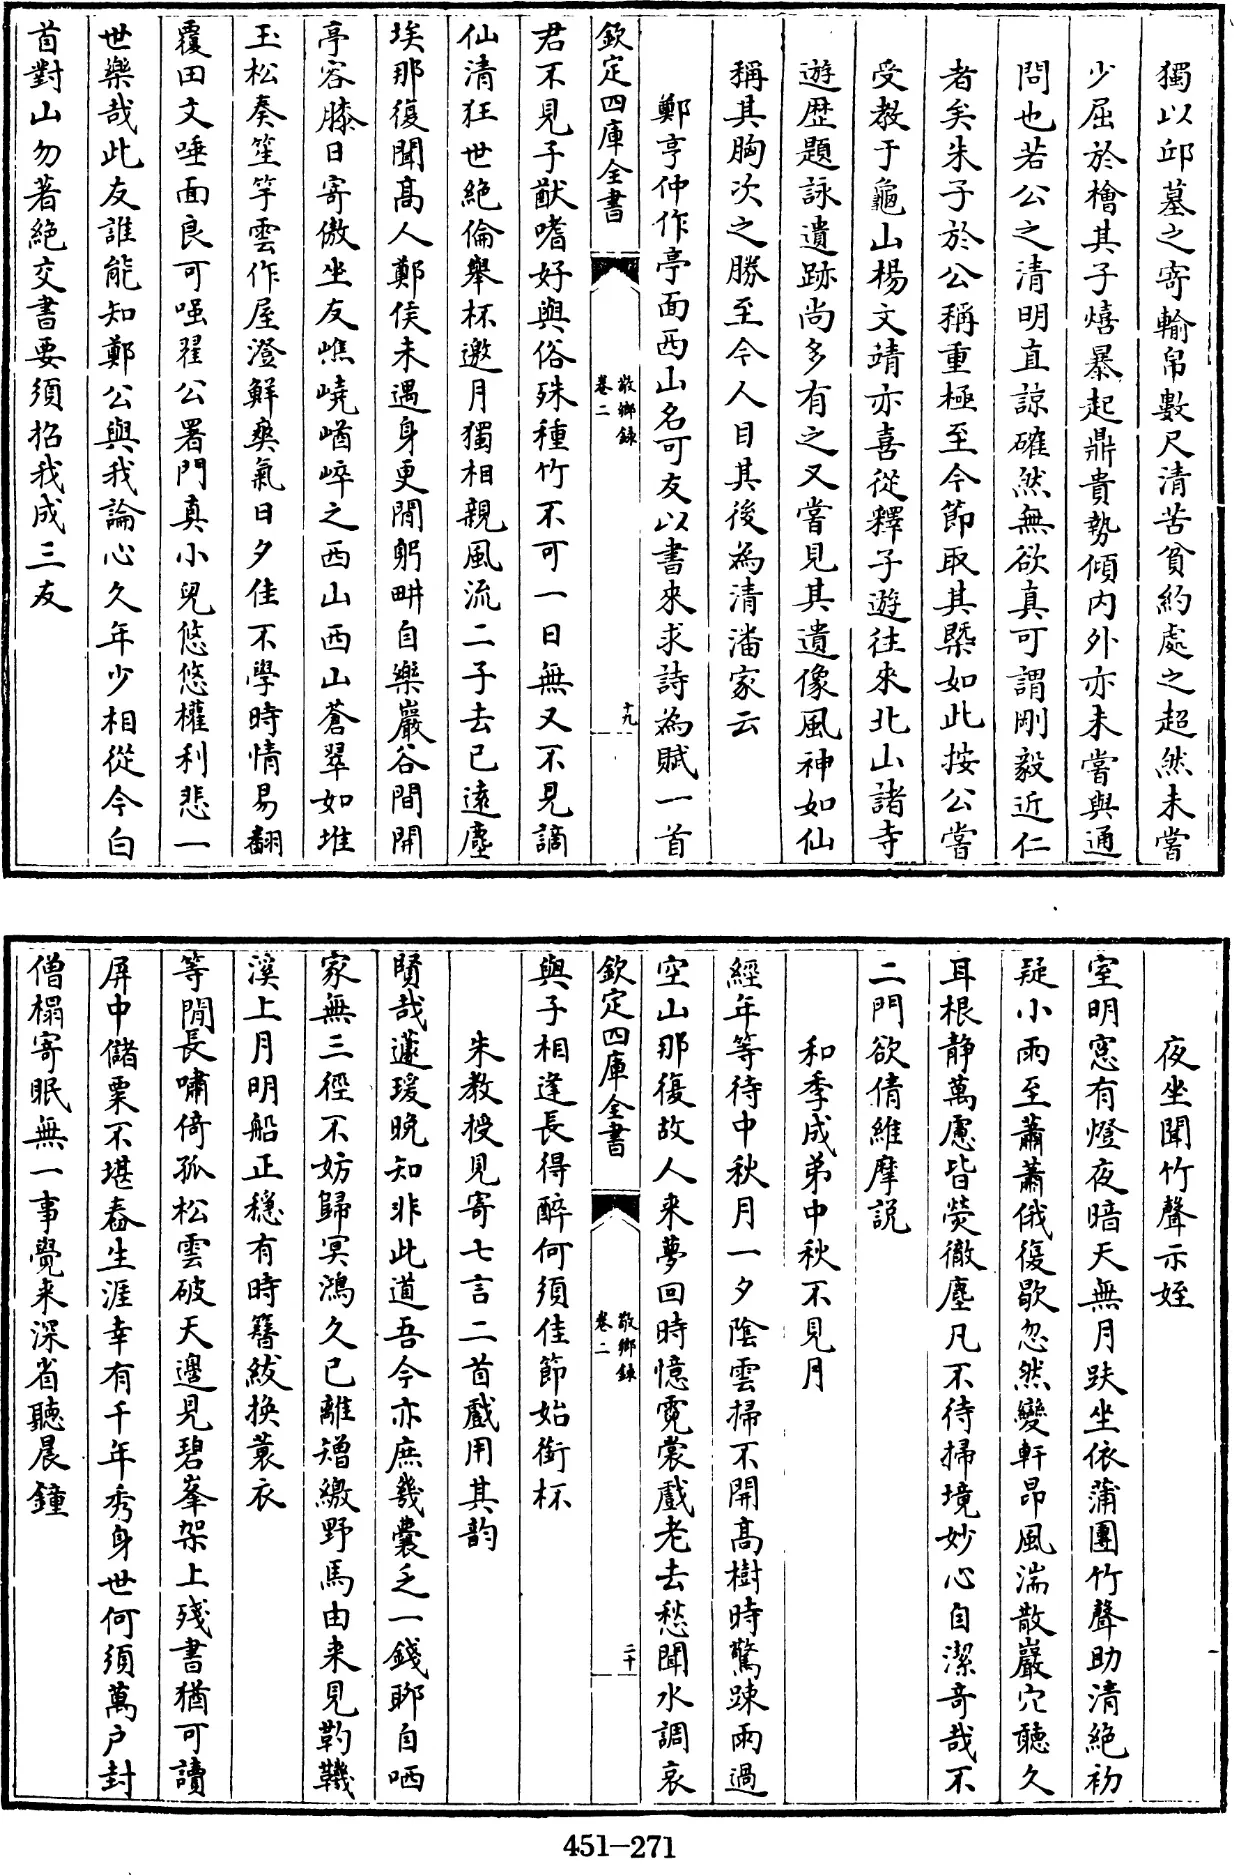 獨以邱墓之寄輸帛數尺清苦貧約處之超然未嘗
少屈於檜其子熺暴起鼎貴勢傾内外亦未嘗與通
問也若公之清明直諒確然無欲真可謂剛毅近仁
者矣朱子於公稱重極至今節取其槩如此按公嘗
受教于龜山楊文靖亦喜從釋子遊往來北山諸寺
遊歴題詠遺跡尚多有之又嘗見其遺像風神如仙
稱其胸次之勝至今人目其後為清潘家云
鄭亨仲作亭面西山名可友以書來求詩為賦一首
欽定四庫全書
敬鄉錄
卷二
十九
君不見子猷嗜好與俗殊種竹不可一日無又不見謫
仙清狂世絶倫舉杯邀月獨相親風流二子去已遠塵
埃那復聞髙人鄭侯未遇身更閒躬畊自樂巖谷間開
亭容膝日寄傲坐友嶕嶢崷崪之西山西山蒼翠如堆
玉松奏笙竽雲作屋澄鮮爽氣日夕佳不學時情易翻
覆田文唾面良可嗤翟公署門真小兒悠悠權利悲一
世樂哉此友誰能知鄭公與我論心久年少相從今白
首對山勿著絶交書要須招我成三友
夜坐聞竹聲示姪
室明窓有燈夜暗天無月趺坐依蒲團竹聲助清絶初
疑小雨至蕭蕭俄復歇忽然變軒昂風湍散巖穴聽久
耳根静萬慮皆熒徹塵凡不待掃境妙心自潔竒哉不
二門欲倩維摩説
和季成弟中秋不見月
經年等待中秋月一夕陰雲掃不開髙樹時驚踈雨過
空山那復故人来夢回時憶霓裳戲老去愁聞水調哀
欽定四庫全書
敬鄉錄
卷二
二十
與子相逢長得醉何須佳節始銜杯
朱教授見寄七言二首戲用其韵
賢哉蘧瑗晚知非此道吾今亦庶幾囊乏一錢聊自哂
家無三徑不妨歸冥鴻久已離矰繳野馬由来見靮鞿
溪上月明船正穩有時簪紱換蓑衣
等閒長嘯倚孤松雲破天邊見碧峯架上殘書猶可讀
屏中儲粟不堪舂生涯幸有千年秀身世何須萬户封
僧榻寄眠無一事覺来深省聽晨鐘
451—271